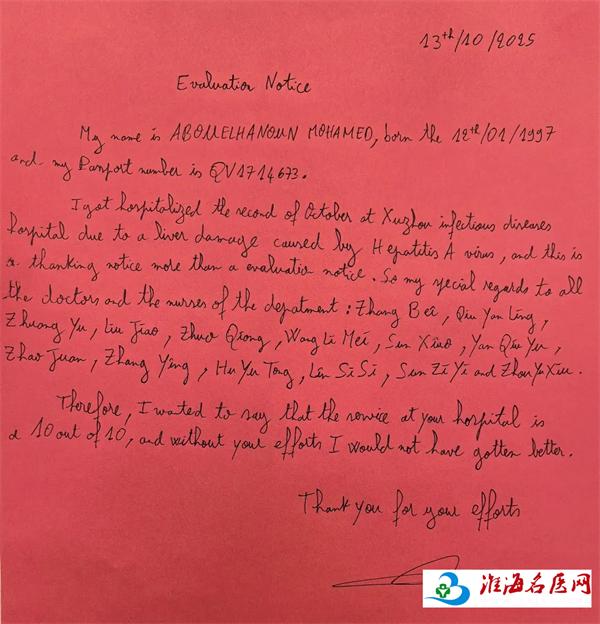 13th/10/2025
Evaluation Notice
My name is ABOUELHANOUN MOHAMED, born the 12th/01/1997
and my Passport number is QV1714673.
I got hospitalized the second of October at Xuzhou infectious diseases
hospital due to a liver damage caused by Hepatitis A virus, and this is
a thanking notice more than a evaluation notice. So my special regards to all
the doctors and the nurses of the depatment: Zhang Bei, Qiu Yan Ling,
Zhuang Yu, Liu Jiao, Zhuo Qiong, Wang Li Mei, Sun Xiao, Yan Qiu Yu,
Zhao Juan, Zhang Ying, Hu Yu Tong, Lin Si Si, Sun Zi Yi and Zhou Ya Xiu.
Therefore, I wanted to say that the service at your hospital is
a 10 out of 10, and without your efforts I would not have gotten better.
Thank you for your efforts
淮海名医网